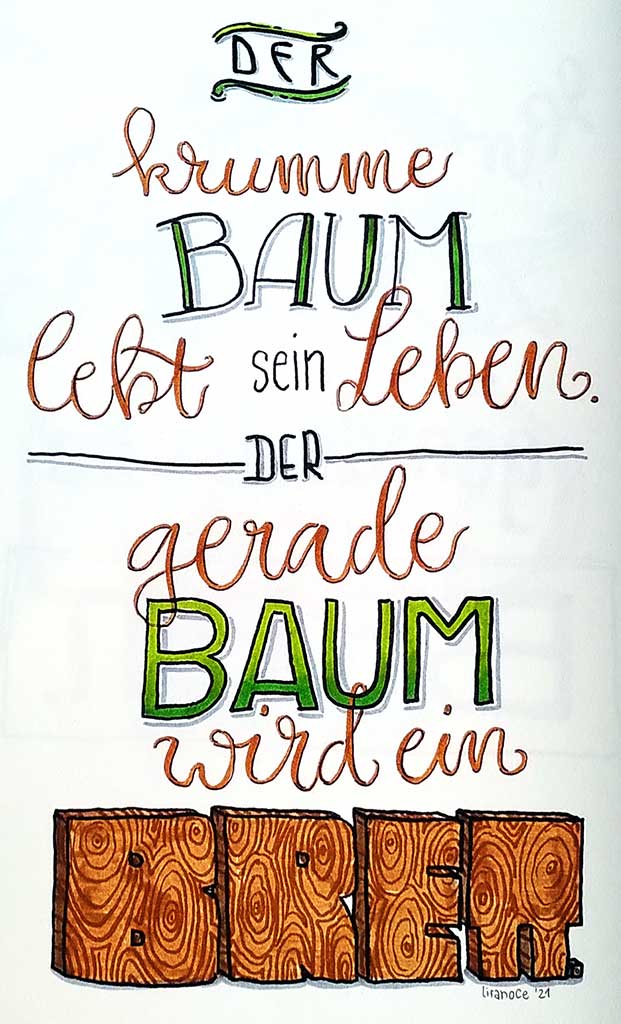 DER
krumme
BAUM
lebt sein Leben.
DER
gerade
BAUM
wird ein
BRETT.
liranoce '21